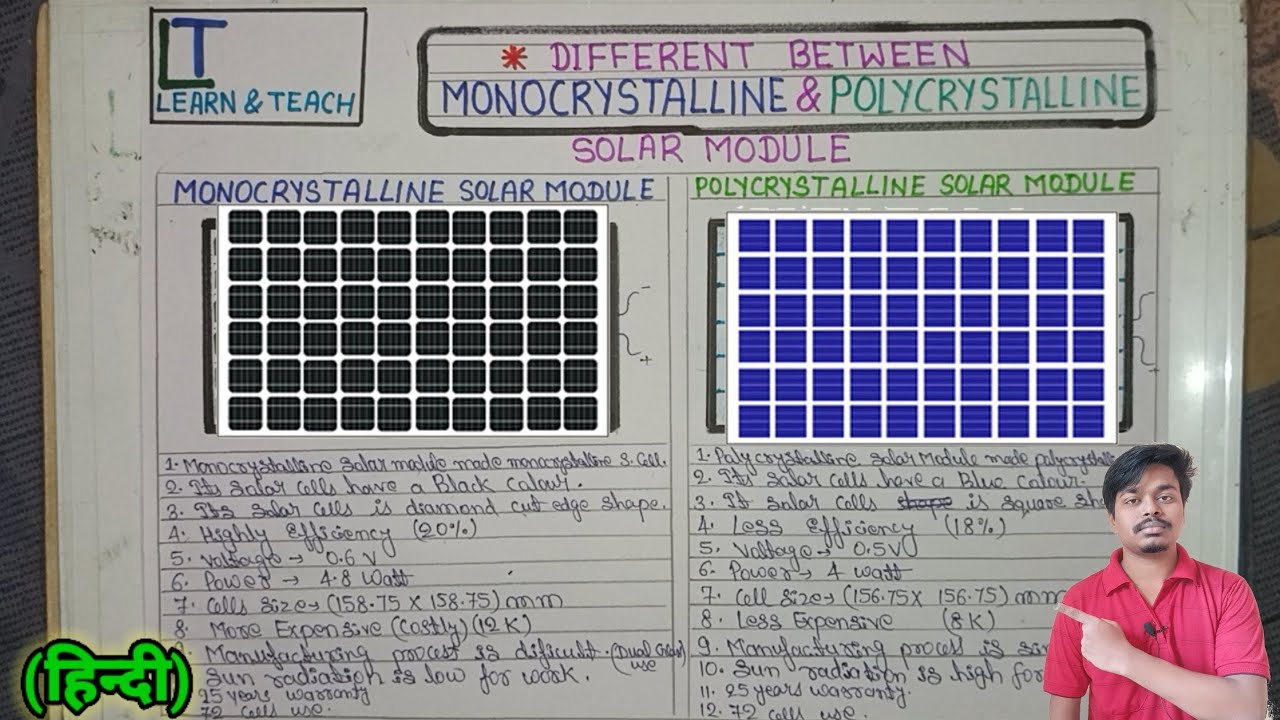 LT
LEARN & TEACH
* DIFFERENT BETWEEN
MONOCRYSTALLINE & POLYCRYSTALLINE
SOLAR MODULE
MONOCRYSTALLINE SOLAR MODULE
1. Monocrystalline Solar module made monocrystalline S. Cell.
2. Its Solar Cells have a Black Colour.
3. Its Solar Cells is diamond cut edge shape.
4. Highly Efficiency (20%)
5. Voltage → 0.6 V
6. Power → 4.8 Watt
7. Cells Size → (158.75 X 158.75) mm
8. More Expensive (Costly) (12K)
Manufacturing process is difficult.
Sun radiation is low for work. (Dual use
25 years warranty
72 cells use.
POLYCRYSTALLINE SOLAR MODULE
1. Polycrystalline Solar Module made
2. Its Solar Cells have a Blue Colour.
3. It Solar Cells is Square
4. Less Efficiency (18%)
5. Voltage → 0.5V
6. Power → 4 Watt
7. Cell Size → (156.75 X 156.75) mm
8. Less Expensive (8K)
9. Manufacturing process is
10. Sun radiation is high for
11. 25 years warranty.
12. 72 cells use.
(हिन्दी)